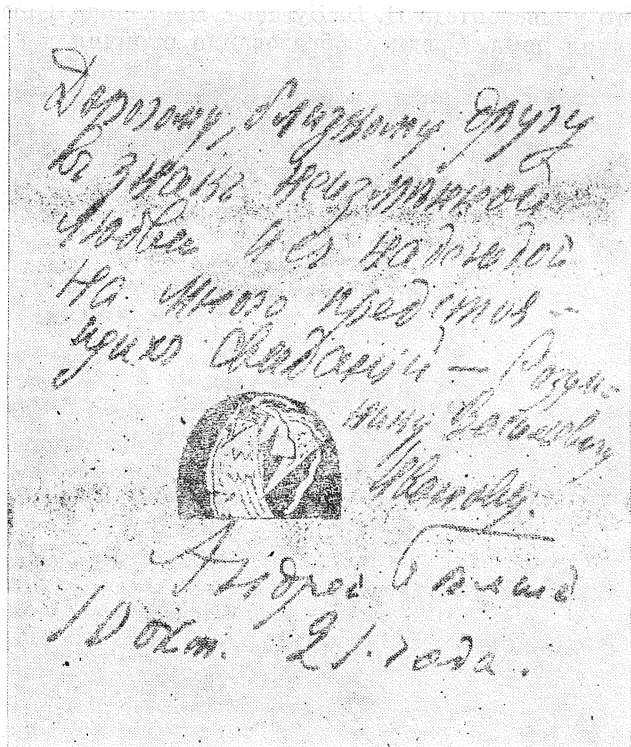 Дорогому, близкому другу
въ знакъ неизмѣнной
любви и съ надеждой
на много предстоя-
щихъ свиданий — Разум-
нику Васильевичу
Иванову.
Андрей Белый
10 окт. 21. года.